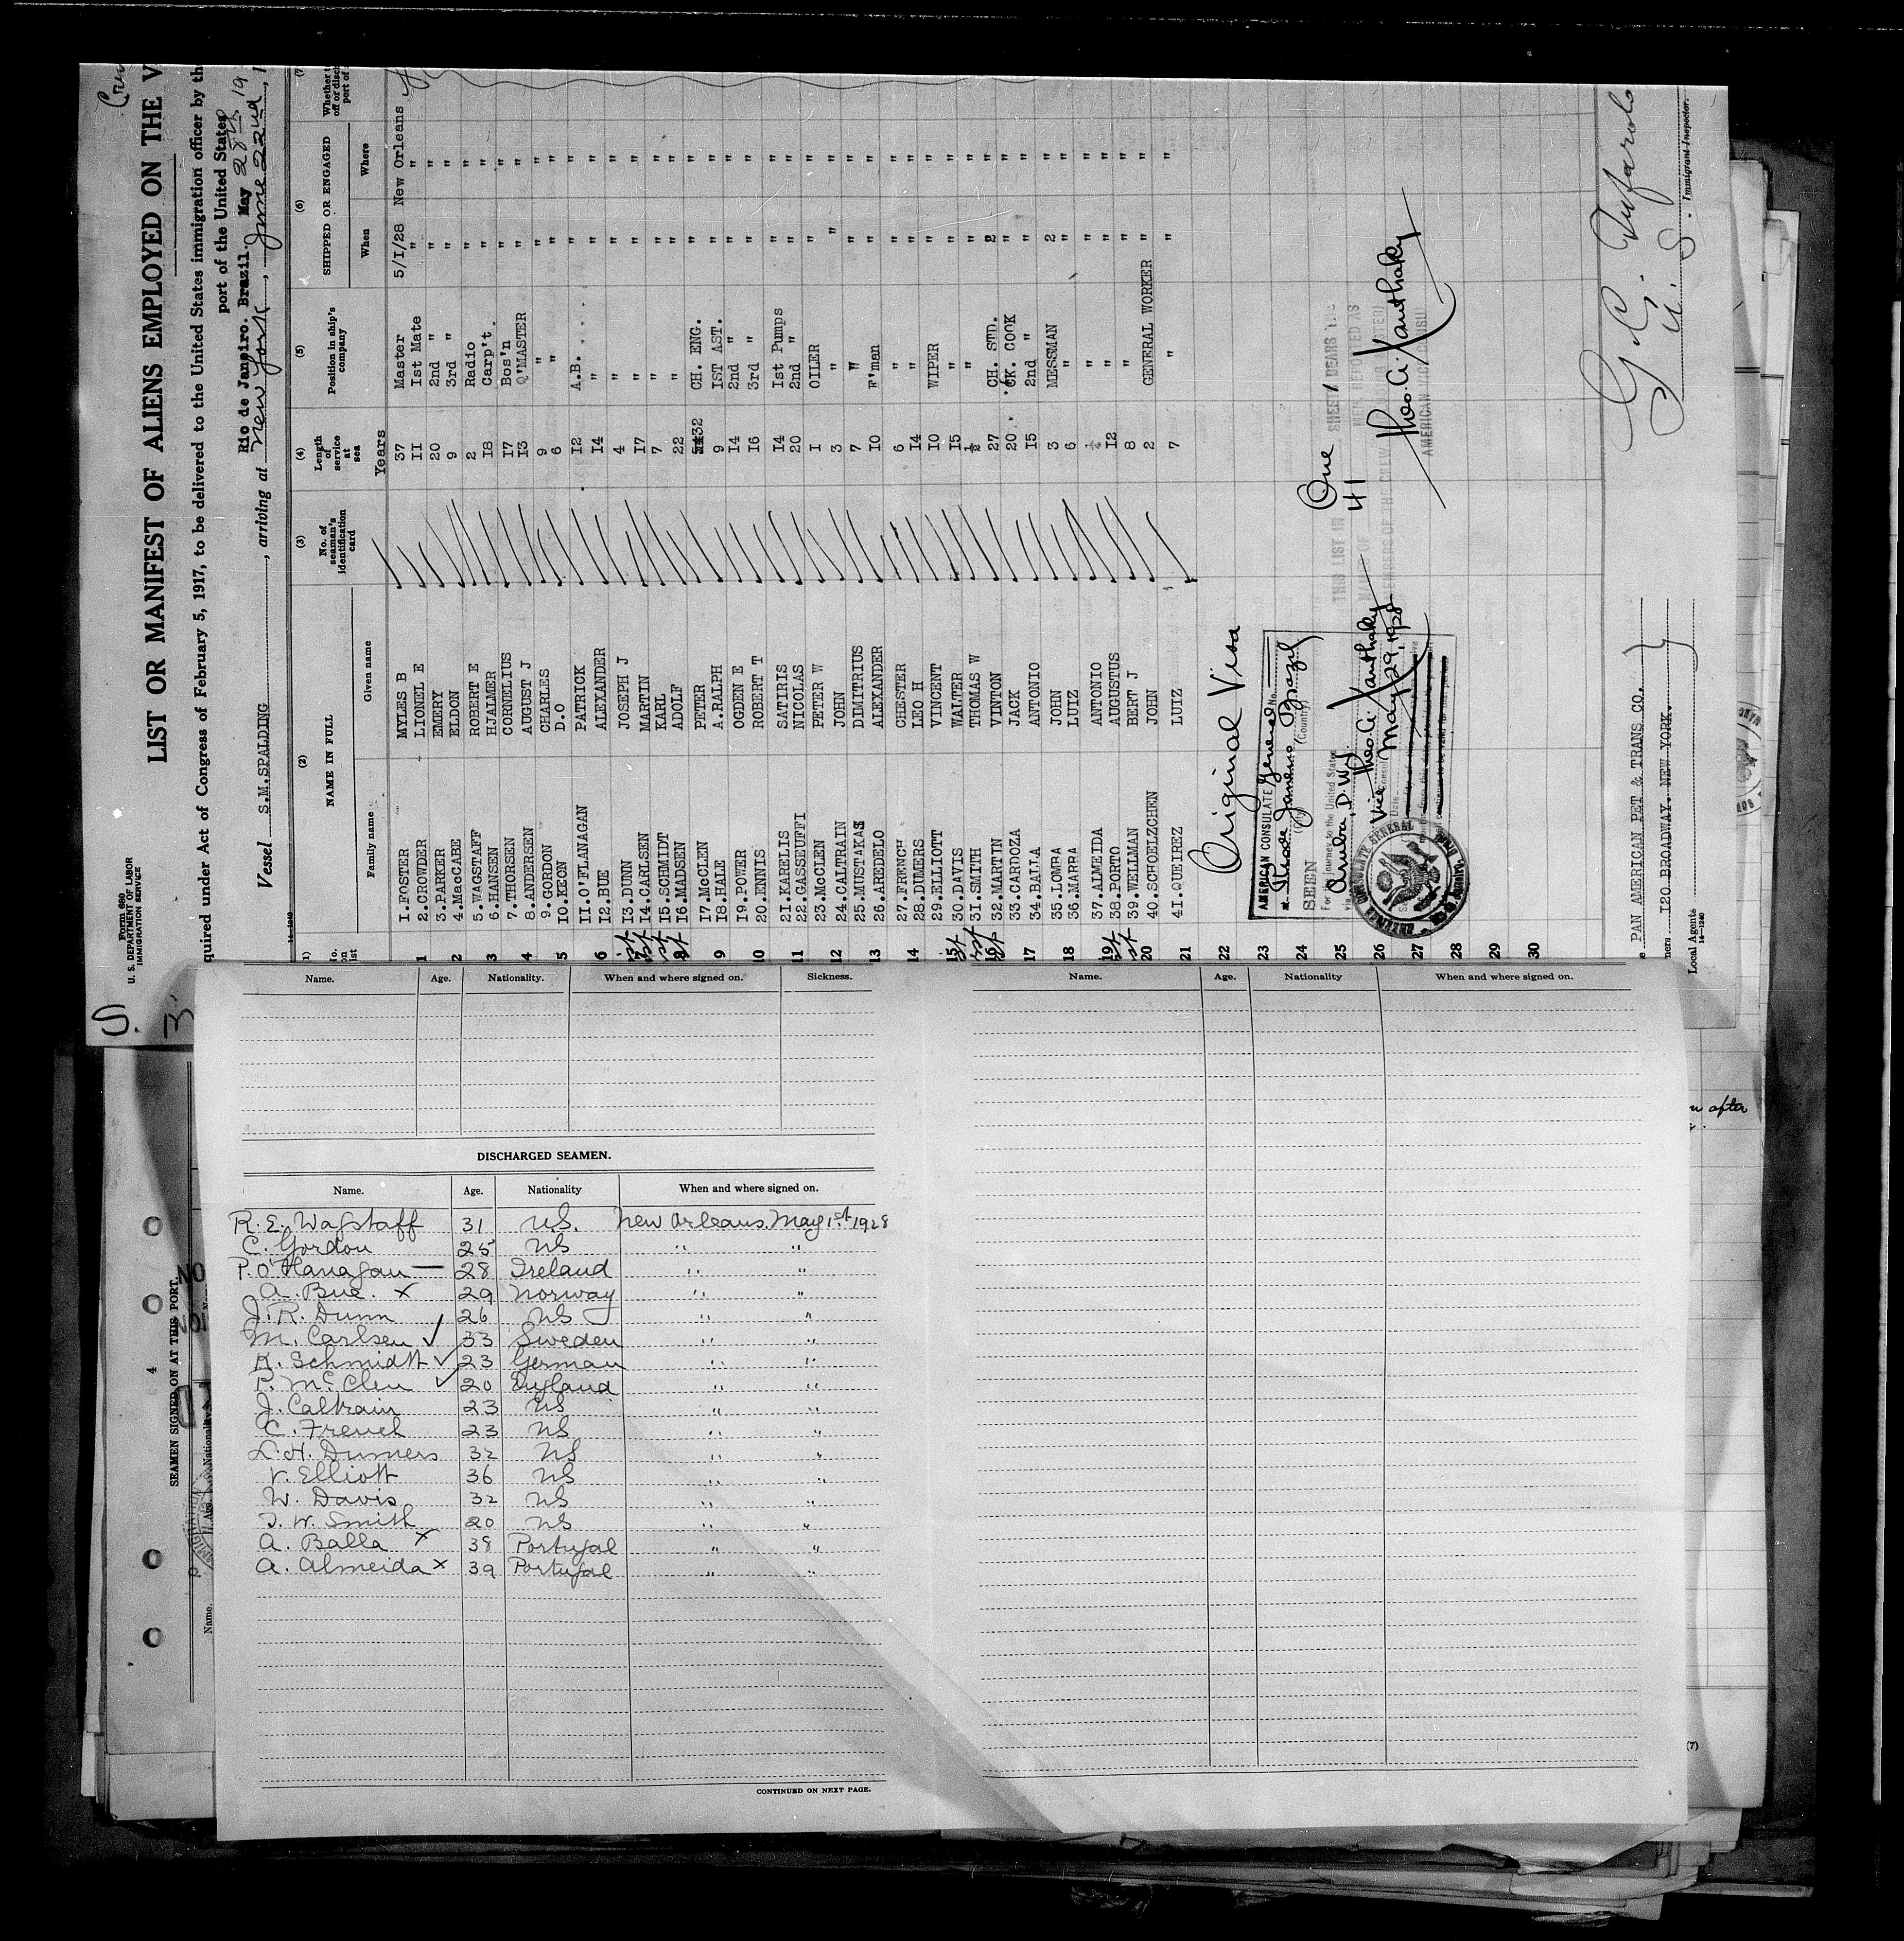 Form 680
U. S. DEPARTMENT OF LABOR
IMMIGRATION SERVICE
S.
3
Crew
LIST OR MANIFEST OF ALIENS EMPLOYED ON THE V
quired under Act of Congress of February 5, 1917, to be delivered to the United States immigration officer by th
port of the United States
Rio de Janeiro. Brazil. May 28th 19
Vessel S.M.SPALDING, arriving at New York, June 22nd, 1
14-1240
(1) (2) (3) (4) (5) (6) (7)
No. on list NAME IN FULL No. of seaman's identification card Length of service at sea Position in ship's company SHIPPED OR ENGAGED Whether t off or disch port of
Family name Given name When Where
Years
1 1.FOSTER MYLES B 37 Master 5/1/28 New Orleans
2.CROWDER LIONEL E 11 1st Mate " "
3.PARKER EMERY 20 2nd " " "
2 4.MacCABE ELDON 9 3rd " " "
5.WAGSTAFF ROBERT E 2 Radio " "
3 6.HANSEN HJALMER 18 Carp't. " "
7.THORSEN CORNELIUS 17 Bos'n " "
4 8.ANDERSEN AUGUST J 13 Q'MASTER " "
9.GORDON CHARLES 9 " " "
5 10.KEON D.O 6 " " "
11.O'FLANAGAN PATRICK 12 A.B. . . . " "
6 12.BUE ALEXANDER 14 " " "
st 13.DUNN JOSEPH J 4 " " "
7 st 14.CARLSEN MARTIN 17 " " "
st 15.SCHMIDT KARL 7 " " "
8 st 16.MADSEN ADOLF 22 " " "
17.McCLEN PETER 32 CH. ENG. " "
9 18.HALE A.RALPH 9 1ST AST. " "
19.POWER OGDEN E 14 2nd " " "
10 20.ENNIS ROBERT T 16 3rd " " "
21.KARELIS SATIRIS 14 1st Pumps " "
11 22.GASSEUFFI NICOLAS 20 2nd " " "
23.McCLEN PETER W 1 OILER " "
12 24.CALTRAIN JOHN 3 " " "
25.MUSTAKAS DIMITRIUS 7 " " "
13 26.AREDELO ALEXANDER 10 F'man " "
27.FRENCH CHESTER 6 " " "
14 28.DUMERS LEO H 14 " " "
29.ELLIOTT VINCENT 10 WIPER " "
15 st 30.DAVIS WALTER 15 " " "
st 31.SMITH THOMAS W ½ " " "
16 st 32.MARTIN VINTON 27 CH. STD. 2 "
33.CARDOZA JACK 20 CK. COOK " "
17 34.BALLA ANTONIO 15 2nd " " "
35.LOMBA JOHN 3 MESSMAN 2 "
18 36.MARRA LUIZ 6 " " "
37.ALMEIDA ANTONIO " " "
19 st 38.PORTO AUGUSTUS 12 " " "
st 39.WELLMAN BERT J 8 " " "
20 40.SCHOELZCHEN JOHN 2 GENERAL WORKER " "
21 41.QUEIREZ LUIZ 7 " " "
22
23
24
25
26
27
28
29
30
Original Visa
AMERICAN CONSULATE General No.
at Rio de Janeiro Brazil
(City) (Country)
SEEN
For the journey to the United States
via Aruba, D.W.I.
Theo. A. Xanthaky
Vice Consul
Date May 29, 1928
One
41
THIS LIST IN SHEET/ BEARS THE
NAMES OF MEN REPORTED AS
MEMBERS OF THE CREW
Theo. A. Xanthaky
AMERICAN VICE CONSUL
PAN AMERICAN PET & TRANS CO.
120 BROADWAY. NEW YORK.
Local Agents
14-1240
U. S. Immigrant Inspector.
Name. Age. Nationality. When and where signed on. Sickness.
Name. Age. Nationality When and where signed on.
DISCHARGED SEAMEN.
Name. Age. Nationality When and where signed on.
R. E. Wagstaff 31 US. New Orleans. May 1st. 1928
C. Gordon 25 US " "
P. O'Flanagan — 28 Ireland " "
A. Bue. x 29 Norway " "
J. R. Dunn 26 US " "
M. Carlsen ✓ 33 Sweden " "
K. Schmidt ✓ 23 German " "
P. McClen ✓ 20 England " "
J. Caltrain 23 US " "
C. French 23 US " "
L. H. Dumers 32 US " "
V. Elliott 36 US " "
W. Davis 32 US " "
T. W. Smith 20 US " "
A. Balla x 38 Portugal " "
A. Almeida x 39 Portugal " "
CONTINUED ON NEXT PAGE.
SEAMEN SIGNED ON AT THIS PORT.
4
Name. Age. Nationality
NO
after
(7)